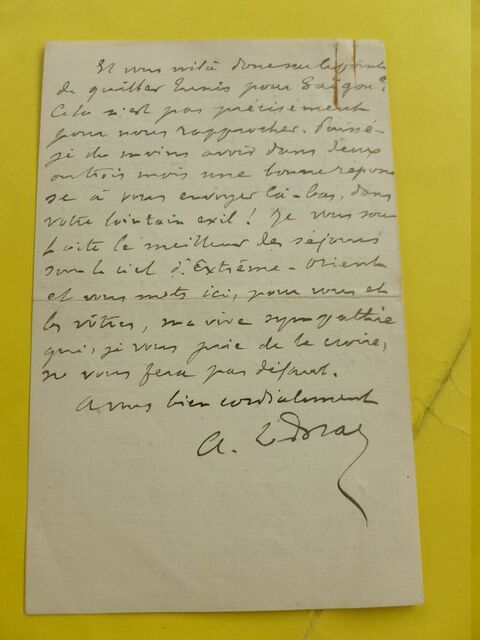 Et vous voilà donc sur le point
de quitter Tunis pour Saïgon ?
Cela n'est pas précisément
pour nous rapprocher. Puissé-
je du moins avoir dans deux
ou trois mois une bonne répon
se à vous envoyer là-bas, dans
votre lointain exil ! Je vous sou
haite le meilleur des séjours
sous le ciel d'Extrême-Orient
et vous mets ici, pour vous et
les vôtres, ma vive sympathie
qui, je vous prie de le croire,
ne vous fera pas défaut.
A vous bien cordialement
A.